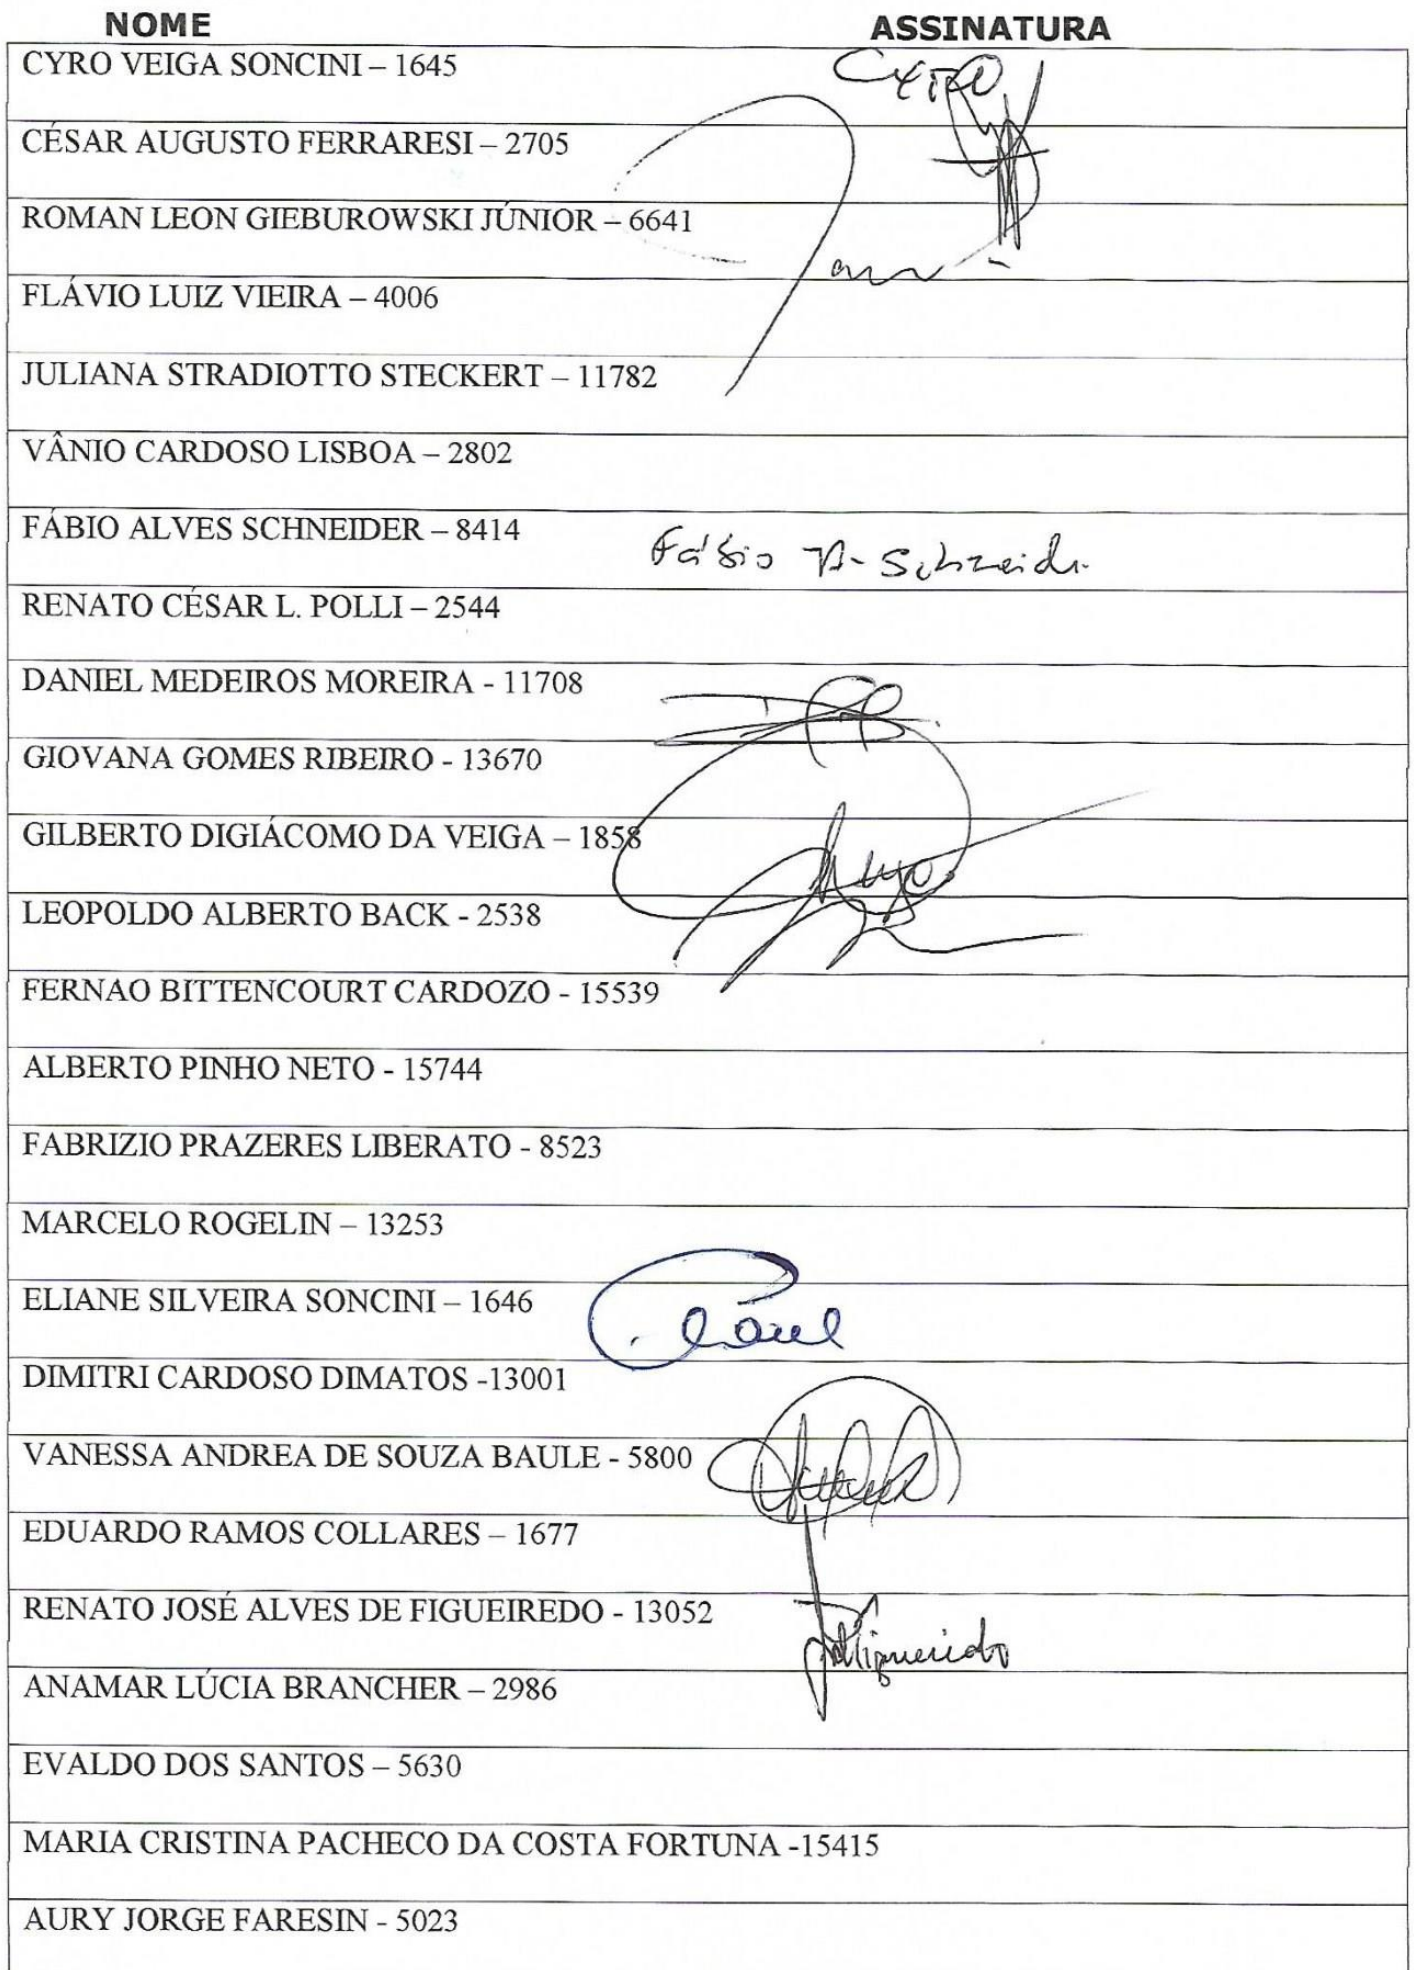 NOME ASSINATURA
CYRO VEIGA SONCINI – 1645 Cyro
CÉSAR AUGUSTO FERRARESI – 2705
ROMAN LEON GIEBUROWSKI JÚNIOR – 6641
FLÁVIO LUIZ VIEIRA – 4006
JULIANA STRADIOTTO STECKERT – 11782
VÂNIO CARDOSO LISBOA – 2802
FÁBIO ALVES SCHNEIDER – 8414 Fábio A. Schneider
RENATO CÉSAR L. POLLI – 2544
DANIEL MEDEIROS MOREIRA - 11708
GIOVANA GOMES RIBEIRO - 13670
GILBERTO DIGIÁCOMO DA VEIGA – 1858
LEOPOLDO ALBERTO BACK - 2538
FERNAO BITTENCOURT CARDOZO - 15539
ALBERTO PINHO NETO - 15744
FABRIZIO PRAZERES LIBERATO - 8523
MARCELO ROGELIN – 13253
ELIANE SILVEIRA SONCINI – 1646
DIMITRI CARDOSO DIMATOS -13001
VANESSA ANDREA DE SOUZA BAULE - 5800
EDUARDO RAMOS COLLARES – 1677
RENATO JOSÉ ALVES DE FIGUEIREDO - 13052
ANAMAR LÚCIA BRANCHER – 2986
EVALDO DOS SANTOS – 5630
MARIA CRISTINA PACHECO DA COSTA FORTUNA -15415
AURY JORGE FARESIN - 5023